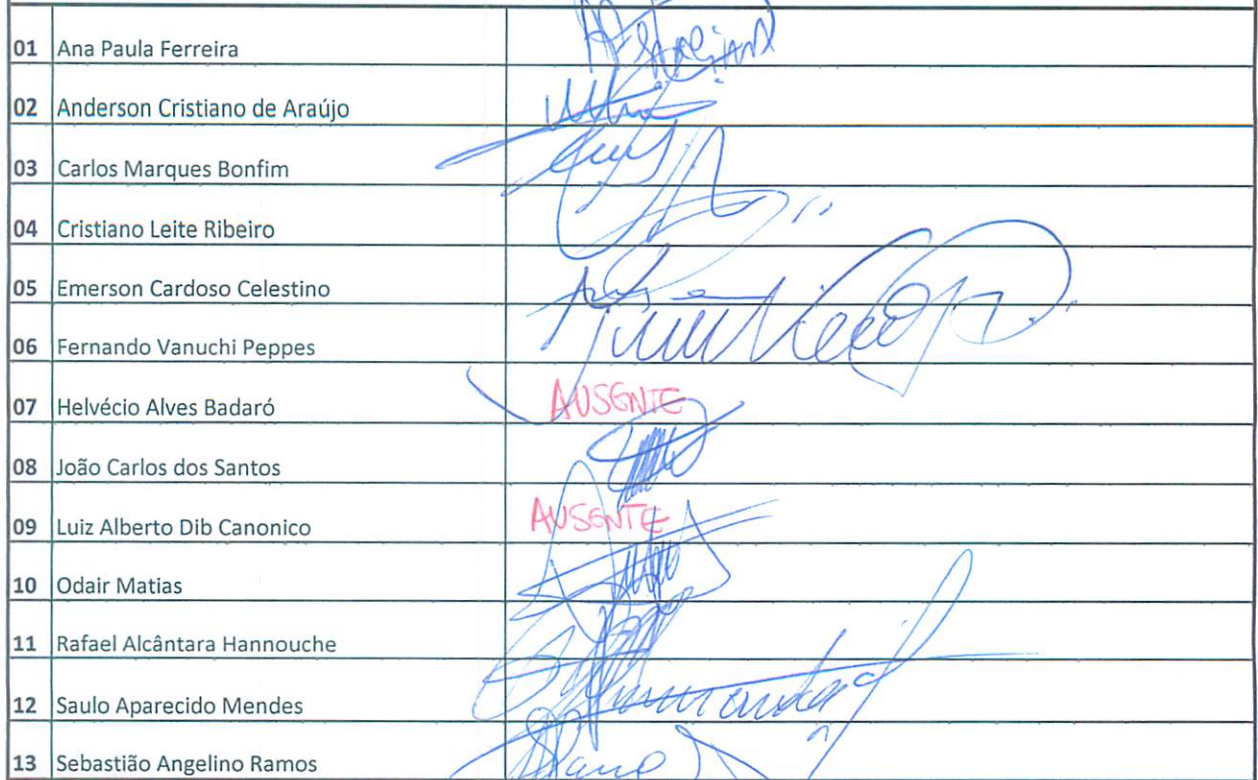 01 Ana Paula Ferreira
02 Anderson Cristiano de Araújo
03 Carlos Marques Bonfim
04 Cristiano Leite Ribeiro
05 Emerson Cardoso Celestino
06 Fernando Vanuchi Peppes
07 Helvécio Alves Badaró AUSENTE
08 João Carlos dos Santos
09 Luiz Alberto Dib Canonico AUSENTE
10 Odair Matias
11 Rafael Alcântara Hannouche
12 Saulo Aparecido Mendes
13 Sebastião Angelino Ramos